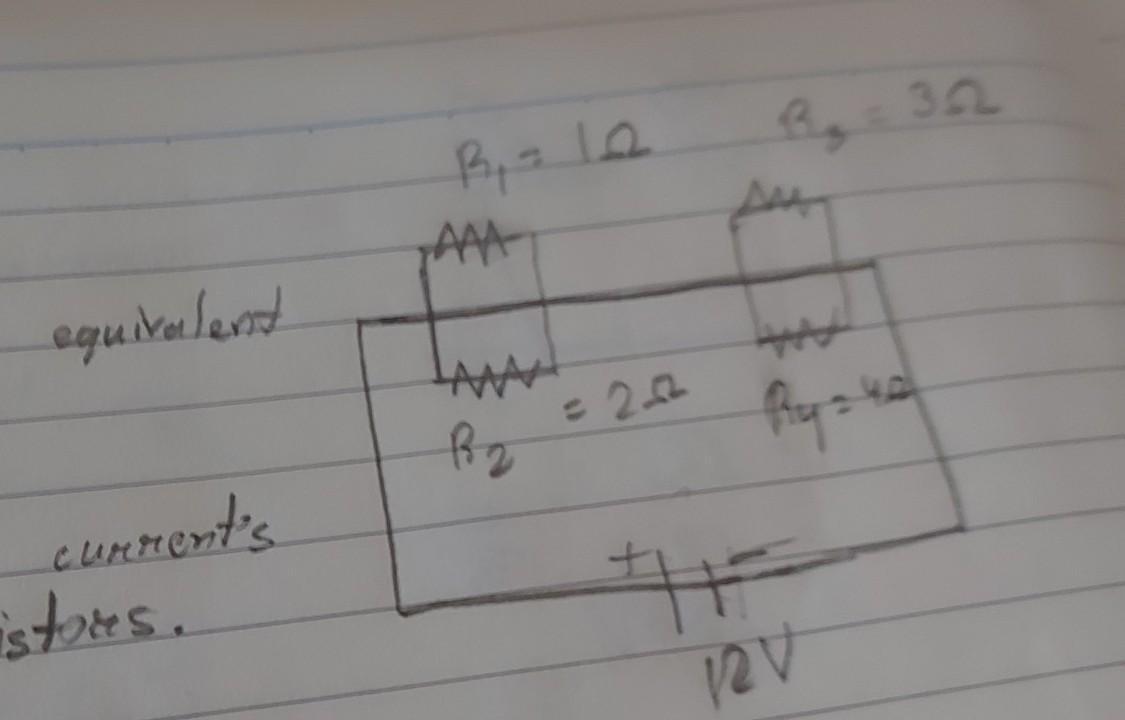 R₃ = 3Ω
R₁ = 1Ω
equivalent
= 2Ω
R₄ = 4Ω
R₂
current's
+ −
istors.
12V